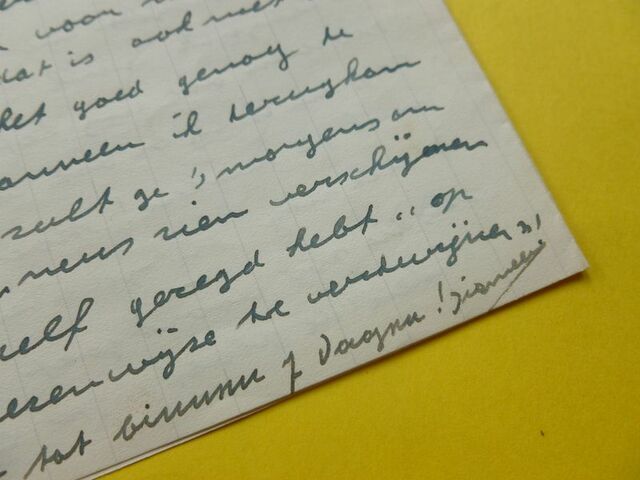 voor
dat is ook niet
het goed genoeg te
wanneer ik terugkom
zult ge 's morgens om
neus zien verschijnen
zelf gezegd hebt „ op
wijze te verdwijnen"!
tot binnen 7 dagen!